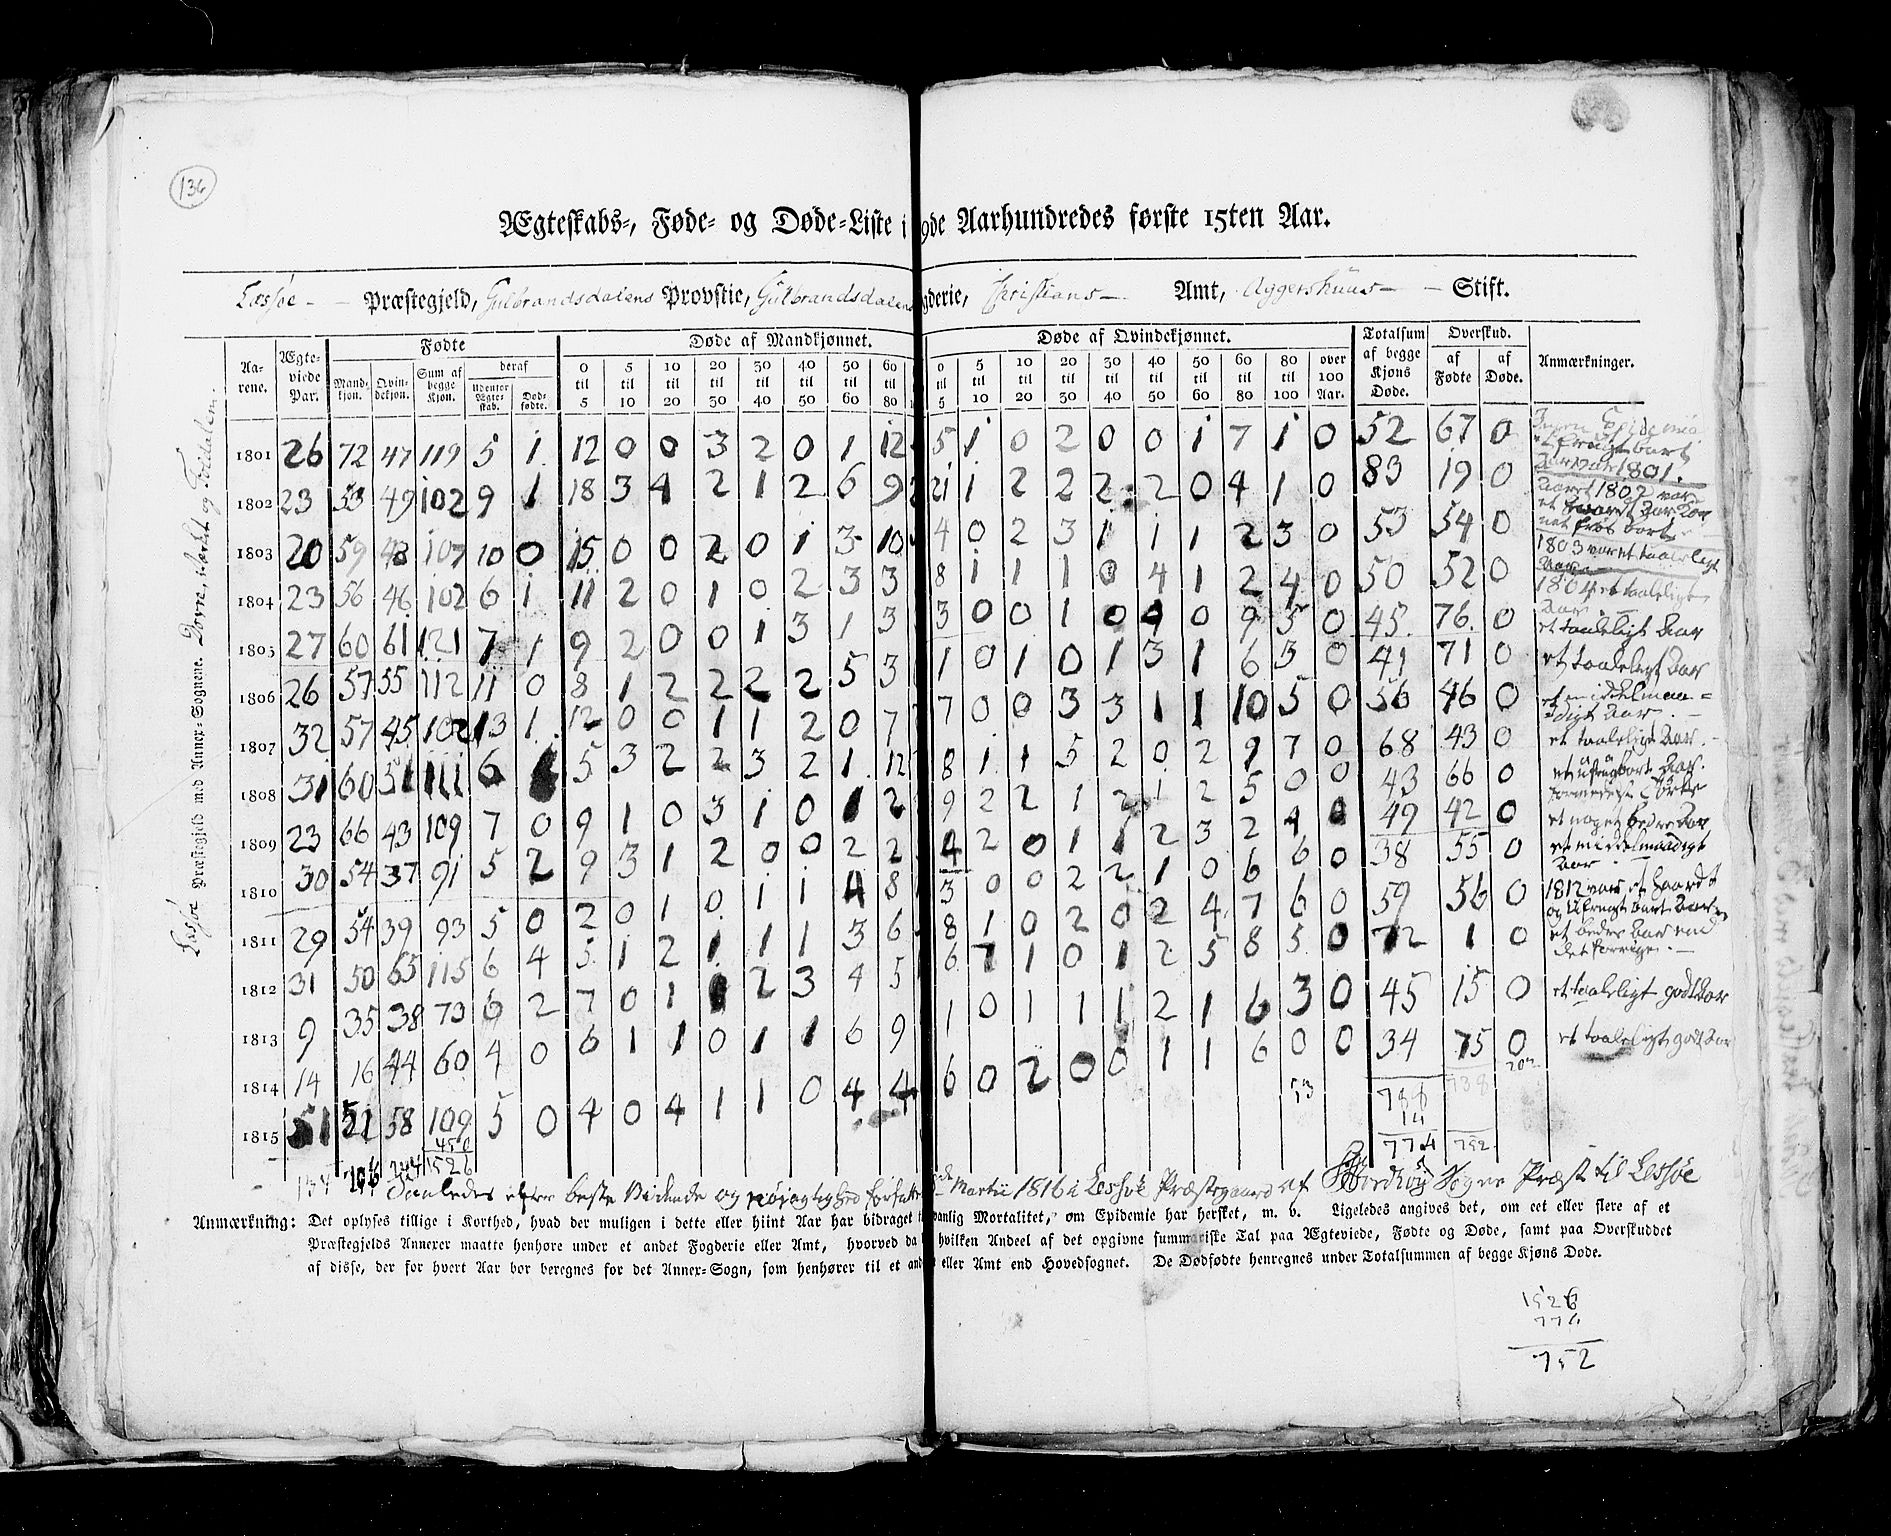 136
Ægteskabs-, Føde- og Døde-Liste i 9de Aarhundredes første 15ten Aar.
Lessøe Præstegjeld, Gulbrandsdalens Provstie, Gulbrandsdalens gderie, Christians Amt, Aggershuus Stift.
Lessøe Præstegjeld med Annex-Sognene. Dovre
Aarene. Ægteviede Par. Fødte Døde af Mandkjønnet. Døde af Qvindekjønnet. Totalsum af begge Kjøns Døde. Overskud. Anmærkninger.
Mandkjøn. Qvindekjøn. Sum af begge Kjøn. deraf af Fødte af Døde.
Udenfor Ægteskab. Dødfødte.
0 til 5 5 til 10 10 til 20 20 til 30 30 til 40 40 til 50 50 til 60 60 til 80
0 til 5 5 til 10 10 til 20 20 til 30 30 til 40 40 til 50 50 til 60 60 til 80 80 til 100 over 100 Aar.
1801 26 72 47 119 5 1 12 0 0 3 2 0 1 12 5 1 0 2 0 0 1 7 1 0 52 67 0
1802 23 53 49 102 9 1 18 3 4 2 1 2 6 9 21 1 2 2 2 2 0 4 1 0 83 19 0
1803 20 59 48 107 10 0 15 0 0 2 0 1 3 10 4 0 2 3 1 1 1 2 3 0 53 54 0
1804 23 56 46 102 6 1 11 2 0 1 0 2 3 3 8 1 1 1 0 4 1 2 4 0 50 52 0
1805 27 60 61 121 7 1 9 2 0 0 1 3 1 3 3 0 0 1 0 4 0 9 5 0 45 76 0 et taaleligt Aar
1806 26 57 55 112 11 0 8 1 2 2 2 2 5 3 1 0 1 0 1 3 1 6 3 0 41 71 0 et taaleligt Aar
1807 32 57 45 102 13 1 12 0 0 1 1 2 0 7 7 0 0 3 3 1 1 10 5 0 56 46 0 et middelmaadigt Aar
1808 31 60 51 111 6 1 5 3 2 2 3 2 1 12 8 1 1 5 2 0 2 9 7 0 68 43 0 et taaleligt Aar
1809 23 66 43 109 7 0 9 1 0 3 1 0 1 2 9 2 2 1 2 1 2 5 0 0 43 66 0
1810 30 54 37 91 5 2 9 3 1 2 0 0 2 2 4 2 0 1 1 2 3 2 4 0 49 42 0 et noget bedre Aar
1811 29 54 39 93 5 0 2 0 1 0 1 1 4 8 3 0 0 2 2 1 0 6 6 0 38 55 0 et middelmaadigt Aar
1812 31 50 65 115 6 4 5 1 2 1 1 1 3 6 8 1 0 2 0 2 4 7 6 0 59 56 0 1812 var et haardt
1813 9 35 38 73 6 2 7 0 1 1 2 3 4 5 6 7 1 0 1 2 5 8 5 0 72 1 0 et beder Aar end det forrige.
1814 14 16 44 60 4 0 6 1 1 0 1 1 6 9 1 0 1 1 1 2 1 6 3 0 45 15 0 et taaleligt godt Aar
1815 51 51 58 109 5 0 4 0 4 1 1 0 4 4 6 0 2 0 0 1 1 6 0 0 34 75 0 et taaleligt godt Aar
1526
774 752
Saaledes efter beste Vidende og nøiagtighed forfatte Martii 1816 i Lessøe Præstegaard af Sogne Præst til Lessøe
Anmærkning: Det oplyses tillige i Korthed, hvad der muligen i dette eller hiint Aar har bidraget vanlig Mortalitet, om Epidemie har hersket, m. v. Ligeledes angives det, om eet eller flere af et
Præstegjelds Annexer maatte henhøre under et andet Fogderie eller Amt, hvorved da hvilken Andeel af det opgivne summariske Tal paa Ægteviede, Fødte og Døde, samt paa Overskuddet
af disse, der for hvert Aar bør beregnes for det Annex-Sogn, som henhører til et and eller Amt end Hovedsognet. De Dødfødte henregnes under Totalsummen af begge Kjøns Døde.
1526
774
752